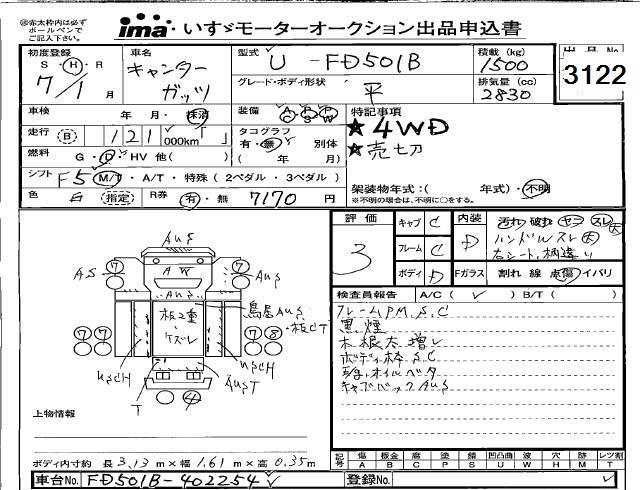 ㊟赤太枠内は必ず
ボールペンで
ご記入下さい。
ima いすゞモーターオークション出品申込書
初度登録 車名 型式 積載 (kg) 出品No
S・H・R キャンター U -FD501B 1500
7/1月 ガッツ グレード・ボディ形状 排気量 (cc) 3122
平 2830
車検 年 月・抹消 装備 A/C P/S P/W 特記事項
走行 B 121 000km 「 」 タコグラフ ★4WD
有・無 別体 ★売切
燃料 G・D・HV 他( ) ( 年 月)
シフト F5 M/T・A/T・特殊 (2ペダル・3ペダル)
架装物年式:( 年式)・不明
色 白 指定 R券 有・無 7170 円 ※不明の場合は、不明に○をする。
評価 キャブ C 内装 汚れ 破れ ヤニ スレ 大
3 フレーム C D ハンドルスレ 大
右シート、柄違い
ボディ D Fガラス 割れ 線 点傷 イバリ
検査員報告 A/C ( ✓ ) B/T ( )
フレームPM、S、C
黒煙
木根太増し
ボディ枠S、C
オイルベタ
キャブバックAUS
AUS
⑦ ⑦
AS AW AUS
AUS
鳥居AUS
板2重 ・板CT
・ケズレ
⑦⑦ ⑦⑧
USCH USCH
T AUST
④
上物情報
ボディ内寸約 長 3.13 m×幅 1.61 m×高 0.35m
記号 傷 板金 腐 塗 錆 凹凸曲 波 穴 跡 レンズ割
A B C P S U W H M T
車台No. FD501B-402254 登録No.